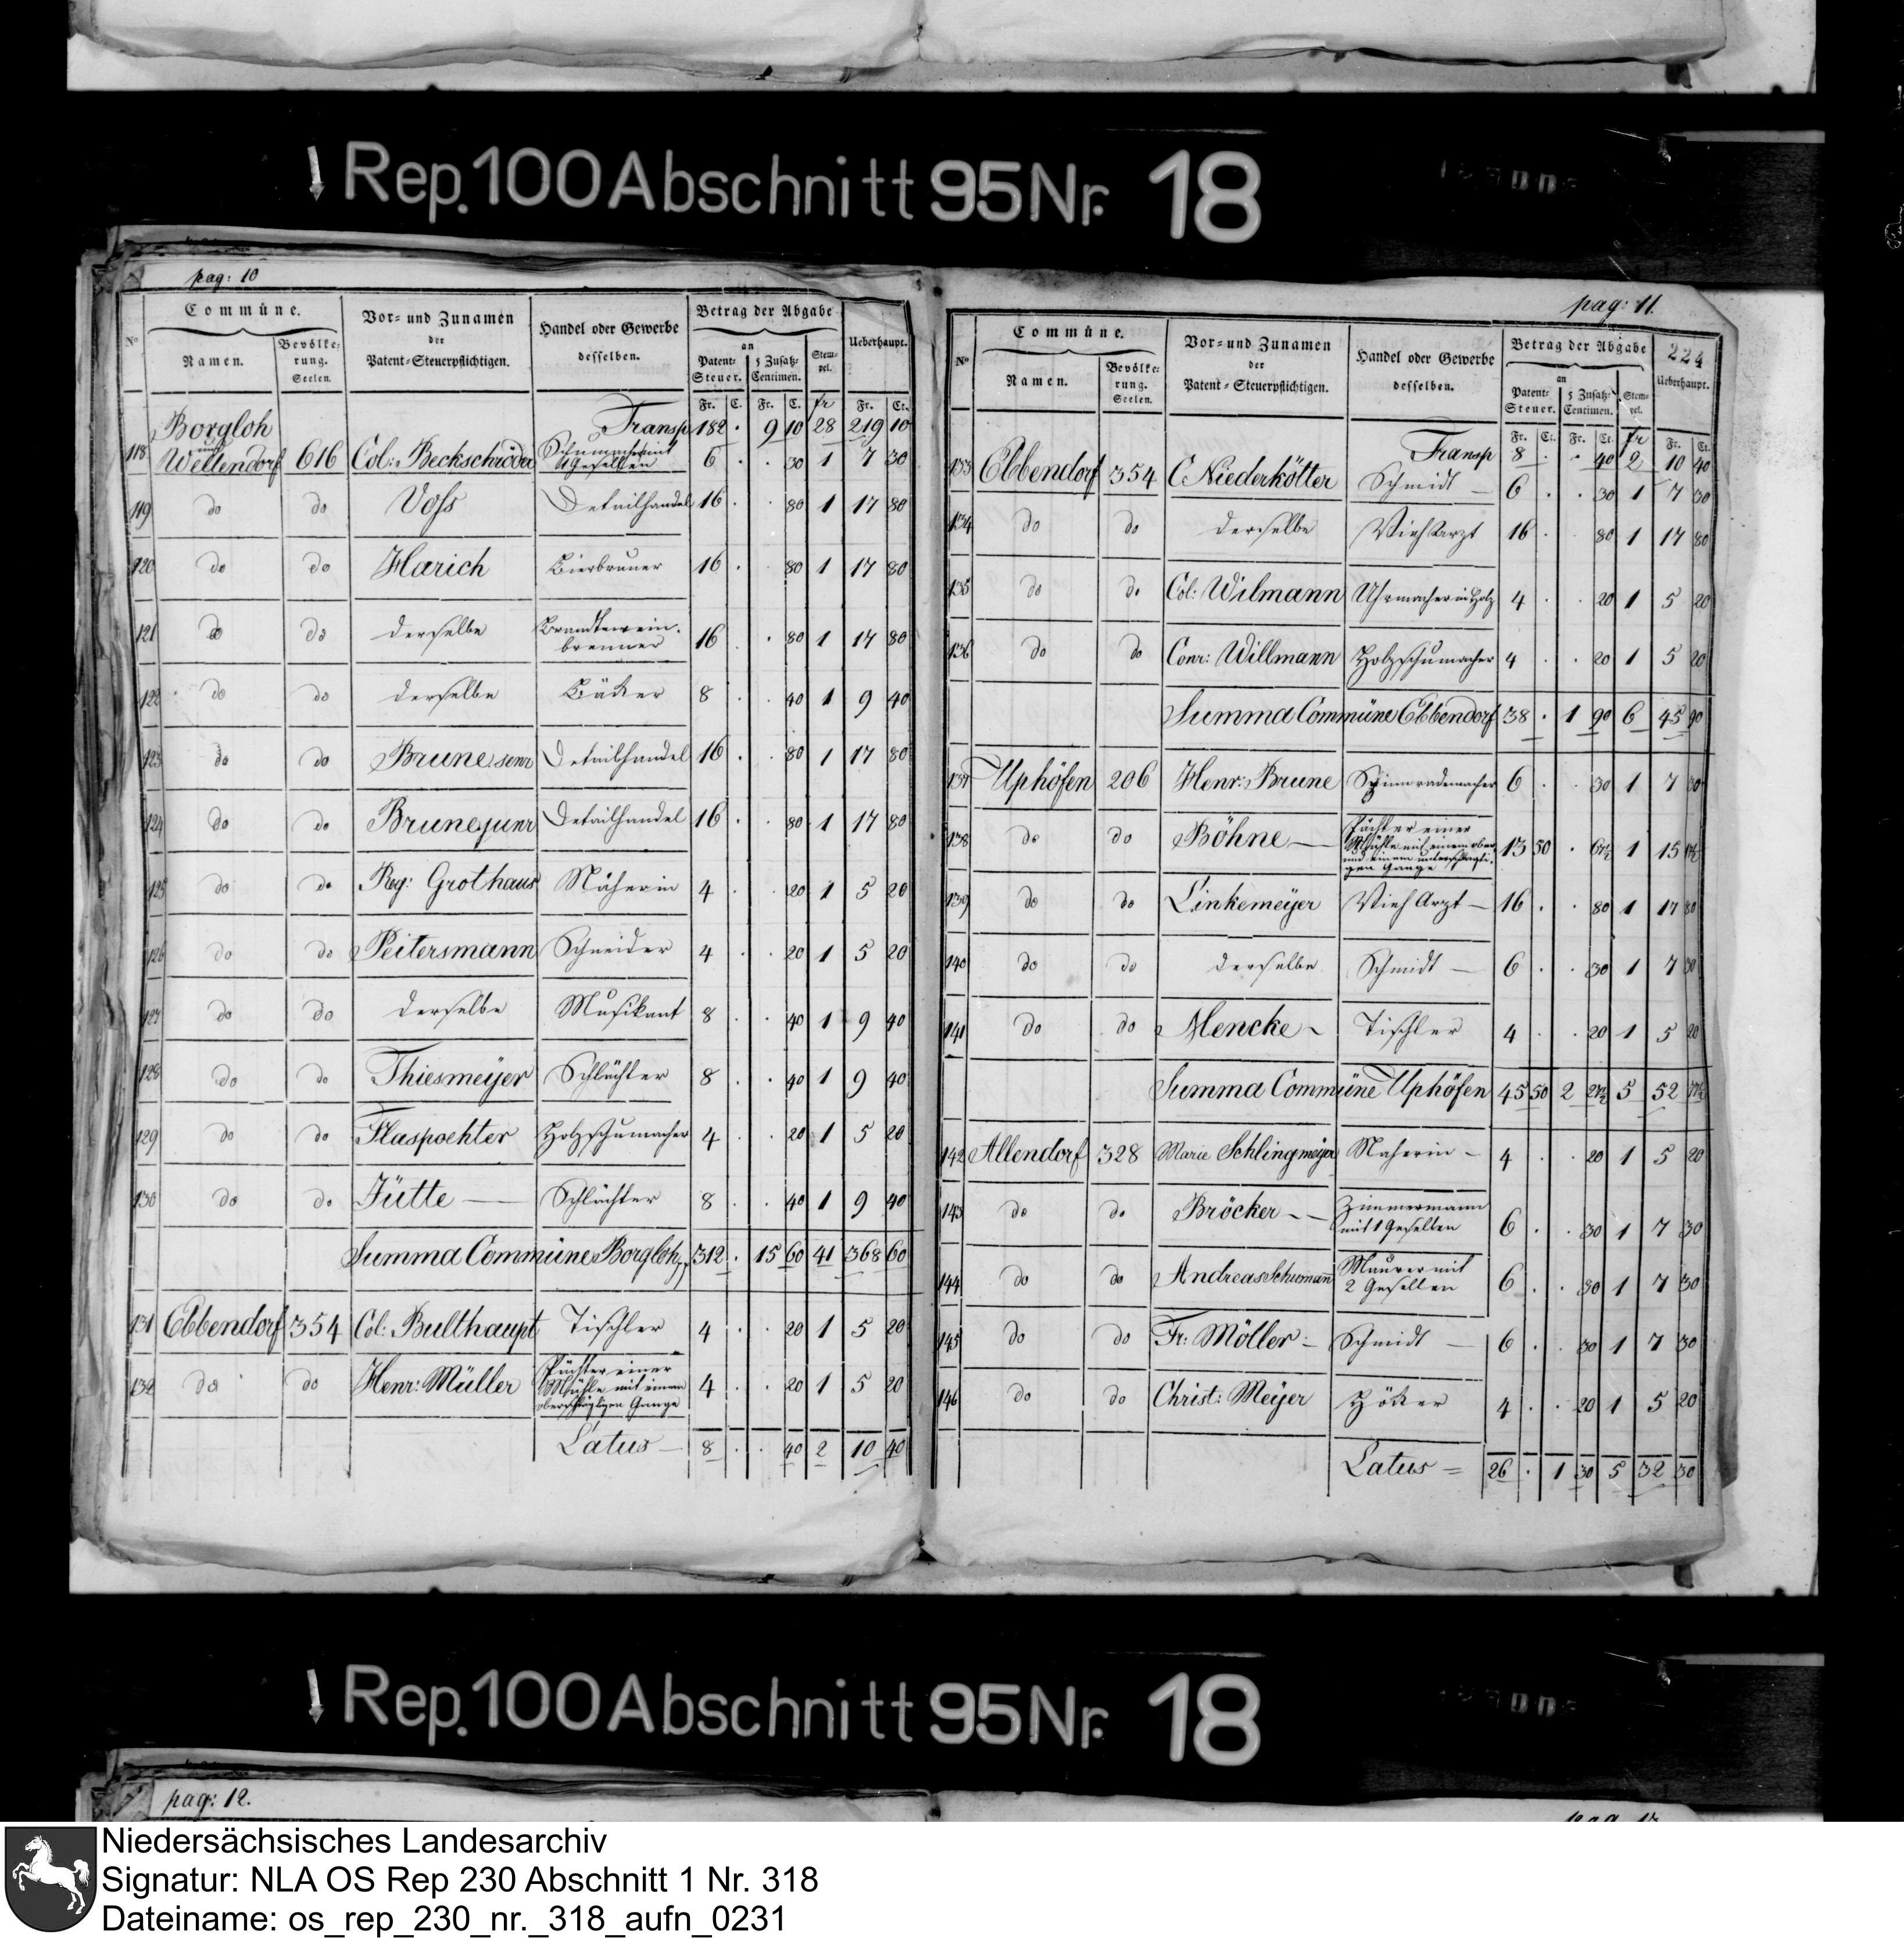 Rep. 100 Abschnitt 95 Nr. 18
pag: 10
Commüne.
Vor- und Zunamen der Patent-Steuerpflichtigen.
Handel oder Gewerbe desselben.
Betrag der Abgabe
Ueberhaupt.
No
Namen.
Bevölkerung. Seelen.
an
Patent-Steuer.
5 Zusatz-Centimen.
Stempel.
Fr. C. Fr. C. fr Fr. Ct.
Transp 182 . 9 10 28 219 10
118 Borgloh und Wellendorf 616 Col: Beckschröder Schumacher mit Gesellen 6 . . 30 1 7 30
119 do do Voss Detailhandel 16 . . 80 1 17 80
120 do do Harich Bierbrauer 16 . . 80 1 17 80
121 do do derselbe Brandtewein-brenner 16 . . 80 1 17 80
122 do do derselbe Bäcker 8 . . 40 1 9 40
123 do do Brune senr Detailhandel 16 . . 80 1 17 80
124 do do Brune junr Detailhandel 16 . . 80 1 17 80
125 do do Reg: Grothaus Näherin 4 . . 20 1 5 20
126 do do Peitersmann Schneider 4 . . 20 1 5 20
127 do do derselbe Musikant 8 . . 40 1 9 40
128 do do Thiesmeyer Schlächter 8 . . 40 1 9 40
129 do do Flaspoehter Holzschumacher 4 . . 20 1 5 20
130 do do Jütte — Schlächter 8 . . 40 1 9 40
Summa Commüne Borgloh 312 . 15 60 41 368 60
131 Ebbendorf 354 Col: Bulthaupt Tischler 4 . . 20 1 5 20
132 do do Henr: Müller Pächter einer Mühle mit einem oberschlägigen Gange 4 . . 20 1 5 20
Latus — 8 . . 40 2 10 40
pag: 11.
224
Commüne.
Vor- und Zunamen der Patent-Steuerpflichtigen.
Handel oder Gewerbe desselben.
Betrag der Abgabe
Ueberhaupt.
No
Namen.
Bevölkerung. Seelen.
an
Patent-Steuer.
5 Zusatz-Centimen.
Stempel.
Fr. Ct. Fr. Ct. fr Fr. Ct.
Transp 8 . . 40 2 10 40
133 Ebbendorf 354 C Niederkötter Schmidt — 6 . . 30 1 7 30
134 do do derselbe Vieh Arzt 16 . . 80 1 17 80
135 do do Col: Wilmann Uhrmacher in Holz 4 . . 20 1 5 20
136 do do Conr: Willmann Holzschumacher 4 . . 20 1 5 20
Summa Commüne Ebbendorf 38 . 1 90 6 45 90
137 Uphöfen 206 Henr: Brune Spinnrademacher 6 . . 30 1 7 30
138 do do Böhne — Pächter einer Mühle mit einem ober und einem unterschlägigen Gange 13 50 . 67½ 1 15 17½
139 do do Linkemeyer Vieh Arzt — 16 . . 80 1 17 80
140 do do derselbe Schmidt — 6 . . 30 1 7 30
141 do do Mencke Tischler 4 . . 20 1 5 20
Summa Commüne Uphöfen 45 50 2 27½ 5 52 77½
142 Allendorf 328 Marie Schlingmeyer Naherin — 4 . . 20 1 5 20
143 do do Bröcker — Zimmermann mit 1 Gesellen 6 . . 30 1 7 30
144 do do Andreas Schumann Maurer mit 2 Gesellen 6 . . 30 1 7 30
145 do do Fr: Möller Schmidt — 6 . . 30 1 7 30
146 do do Christ: Meyer Höker 4 . . 20 1 5 20
Latus = 26 . 1 30 5 32 30
Rep. 100 Abschnitt 95 Nr. 18
pag: 12.
Niedersächsisches Landesarchiv
Signatur: NLA OS Rep 230 Abschnitt 1 Nr. 318
Dateiname: os_rep_230_nr._318_aufn_0231